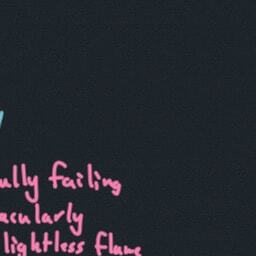 ully failing
acularly
lightless flame